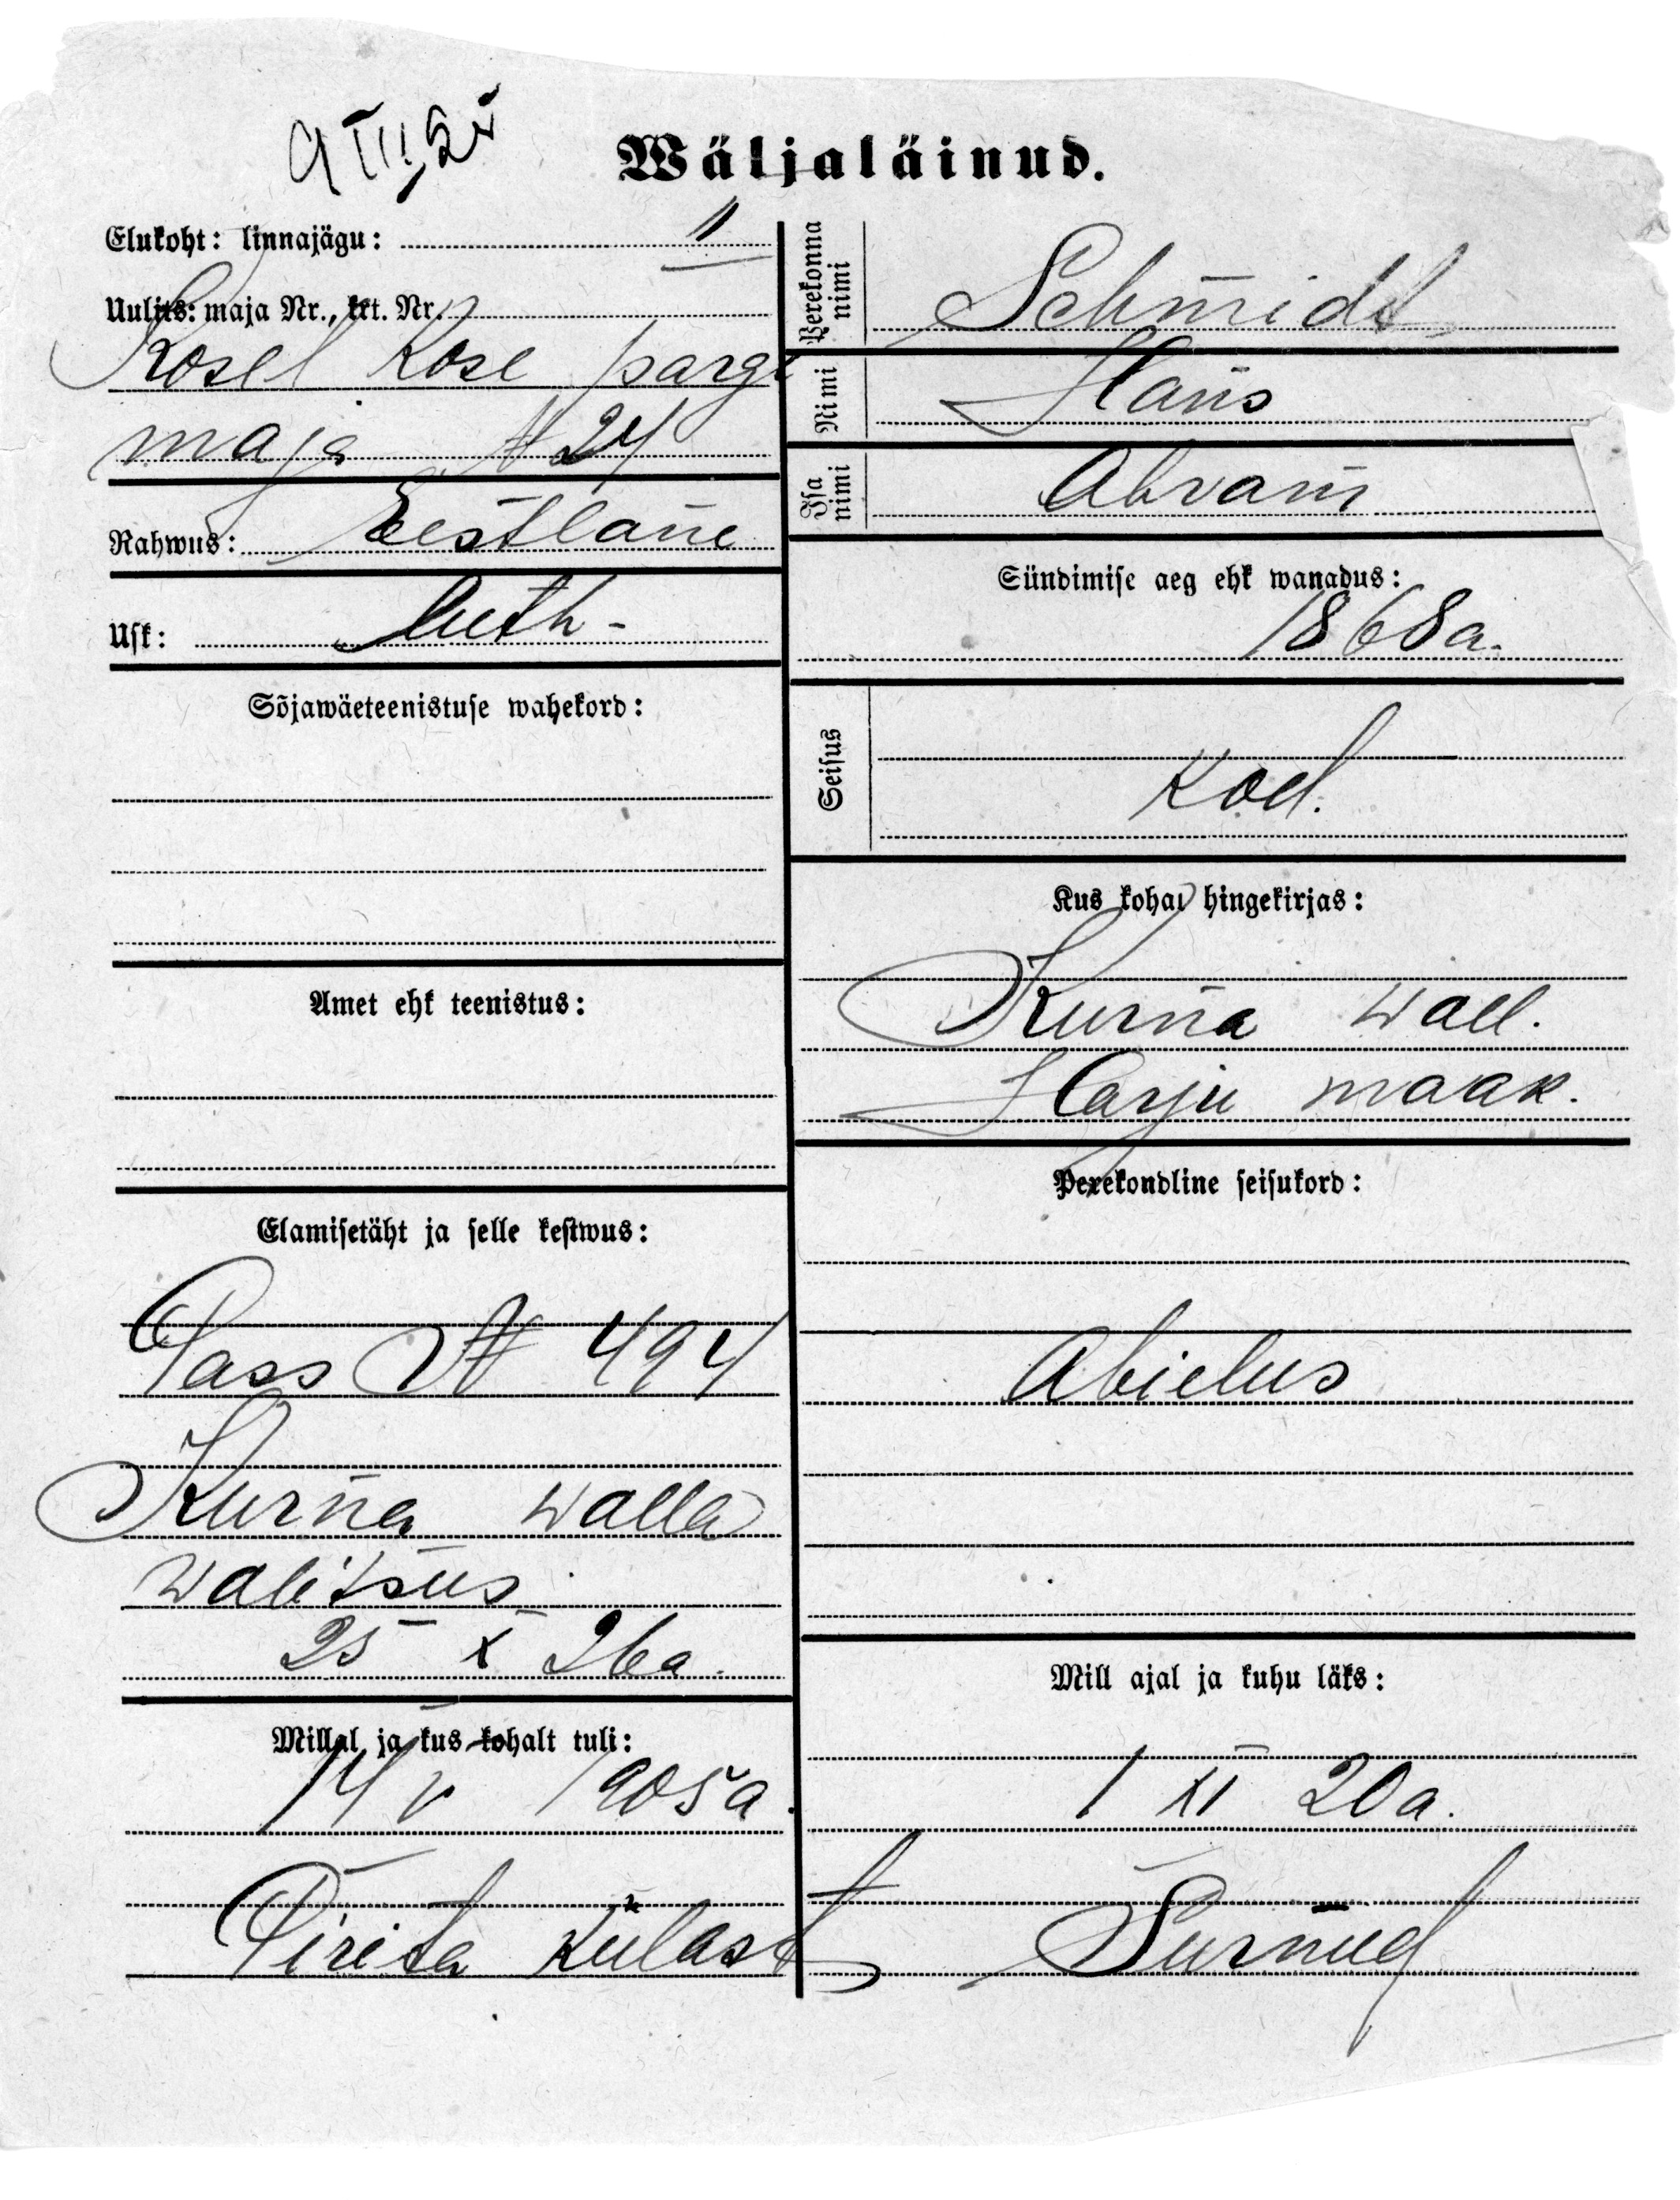 Wäljaläinud.
Elukoht: linnajägu: II
Uulits: maja Nr., krt. Nr.
Kosel Kose pargi
maja № 24
Rahwus: Eestlane
Usk: Luth-
Sõjawäeteenistuse wahekord:
Amet ehk teenistus:
Elamisetäht ja selle kestwus:
Pass № 494
Kurna walla
walitsus
25 X 26a.
Millal ja kus kohalt tuli:
14 V 1905a.
Pirita Külast
Perekonna nimi
Schmidt
Nimi
Hans
Isa nimi
Abram
Sündimise aeg ehk wanadus:
1868a.
Seisus
Kod.
Kus kohal hingekirjas:
Kurna wall.
Harju maak.
Perekondline seisukord:
Abielus
Mill ajal ja kuhu läks:
1 XI 20a.
Surnud